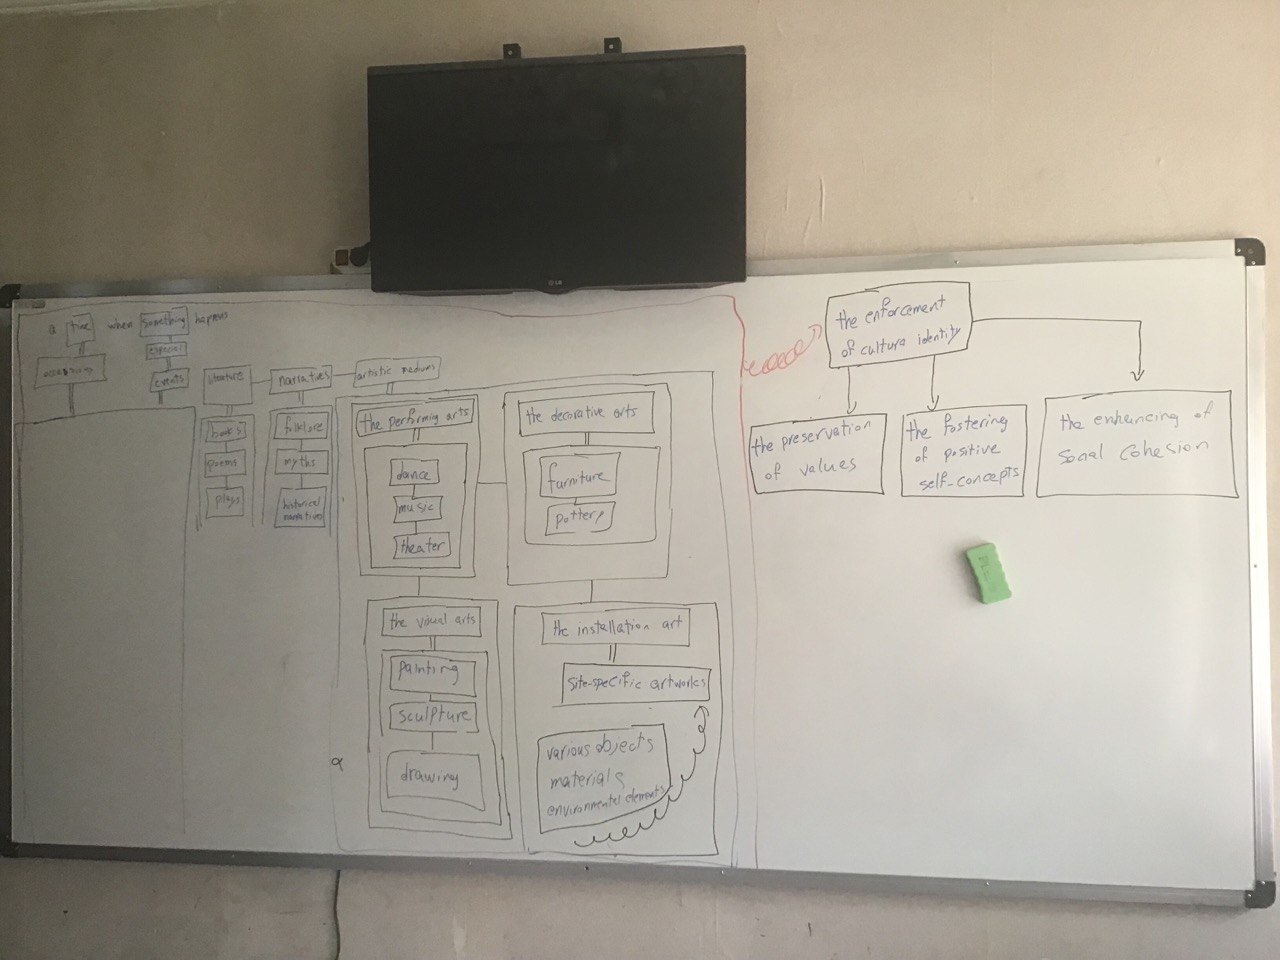 LG
a time when something happens
occasions
especial
events
literature
books
poems
plays
narratives
folklore
myths
historical
narratives
artistic mediums
the performing arts
dance
music
theater
the decorative arts
furniture
pottery
the visual arts
painting
sculpture
drawing
the installation art
site-specific artworks
various objects
materials
environmental elements
the enforcement
of culture identity
the preservation
of values
the fostering
of positive
self-concepts
the enhancing of
social cohesion